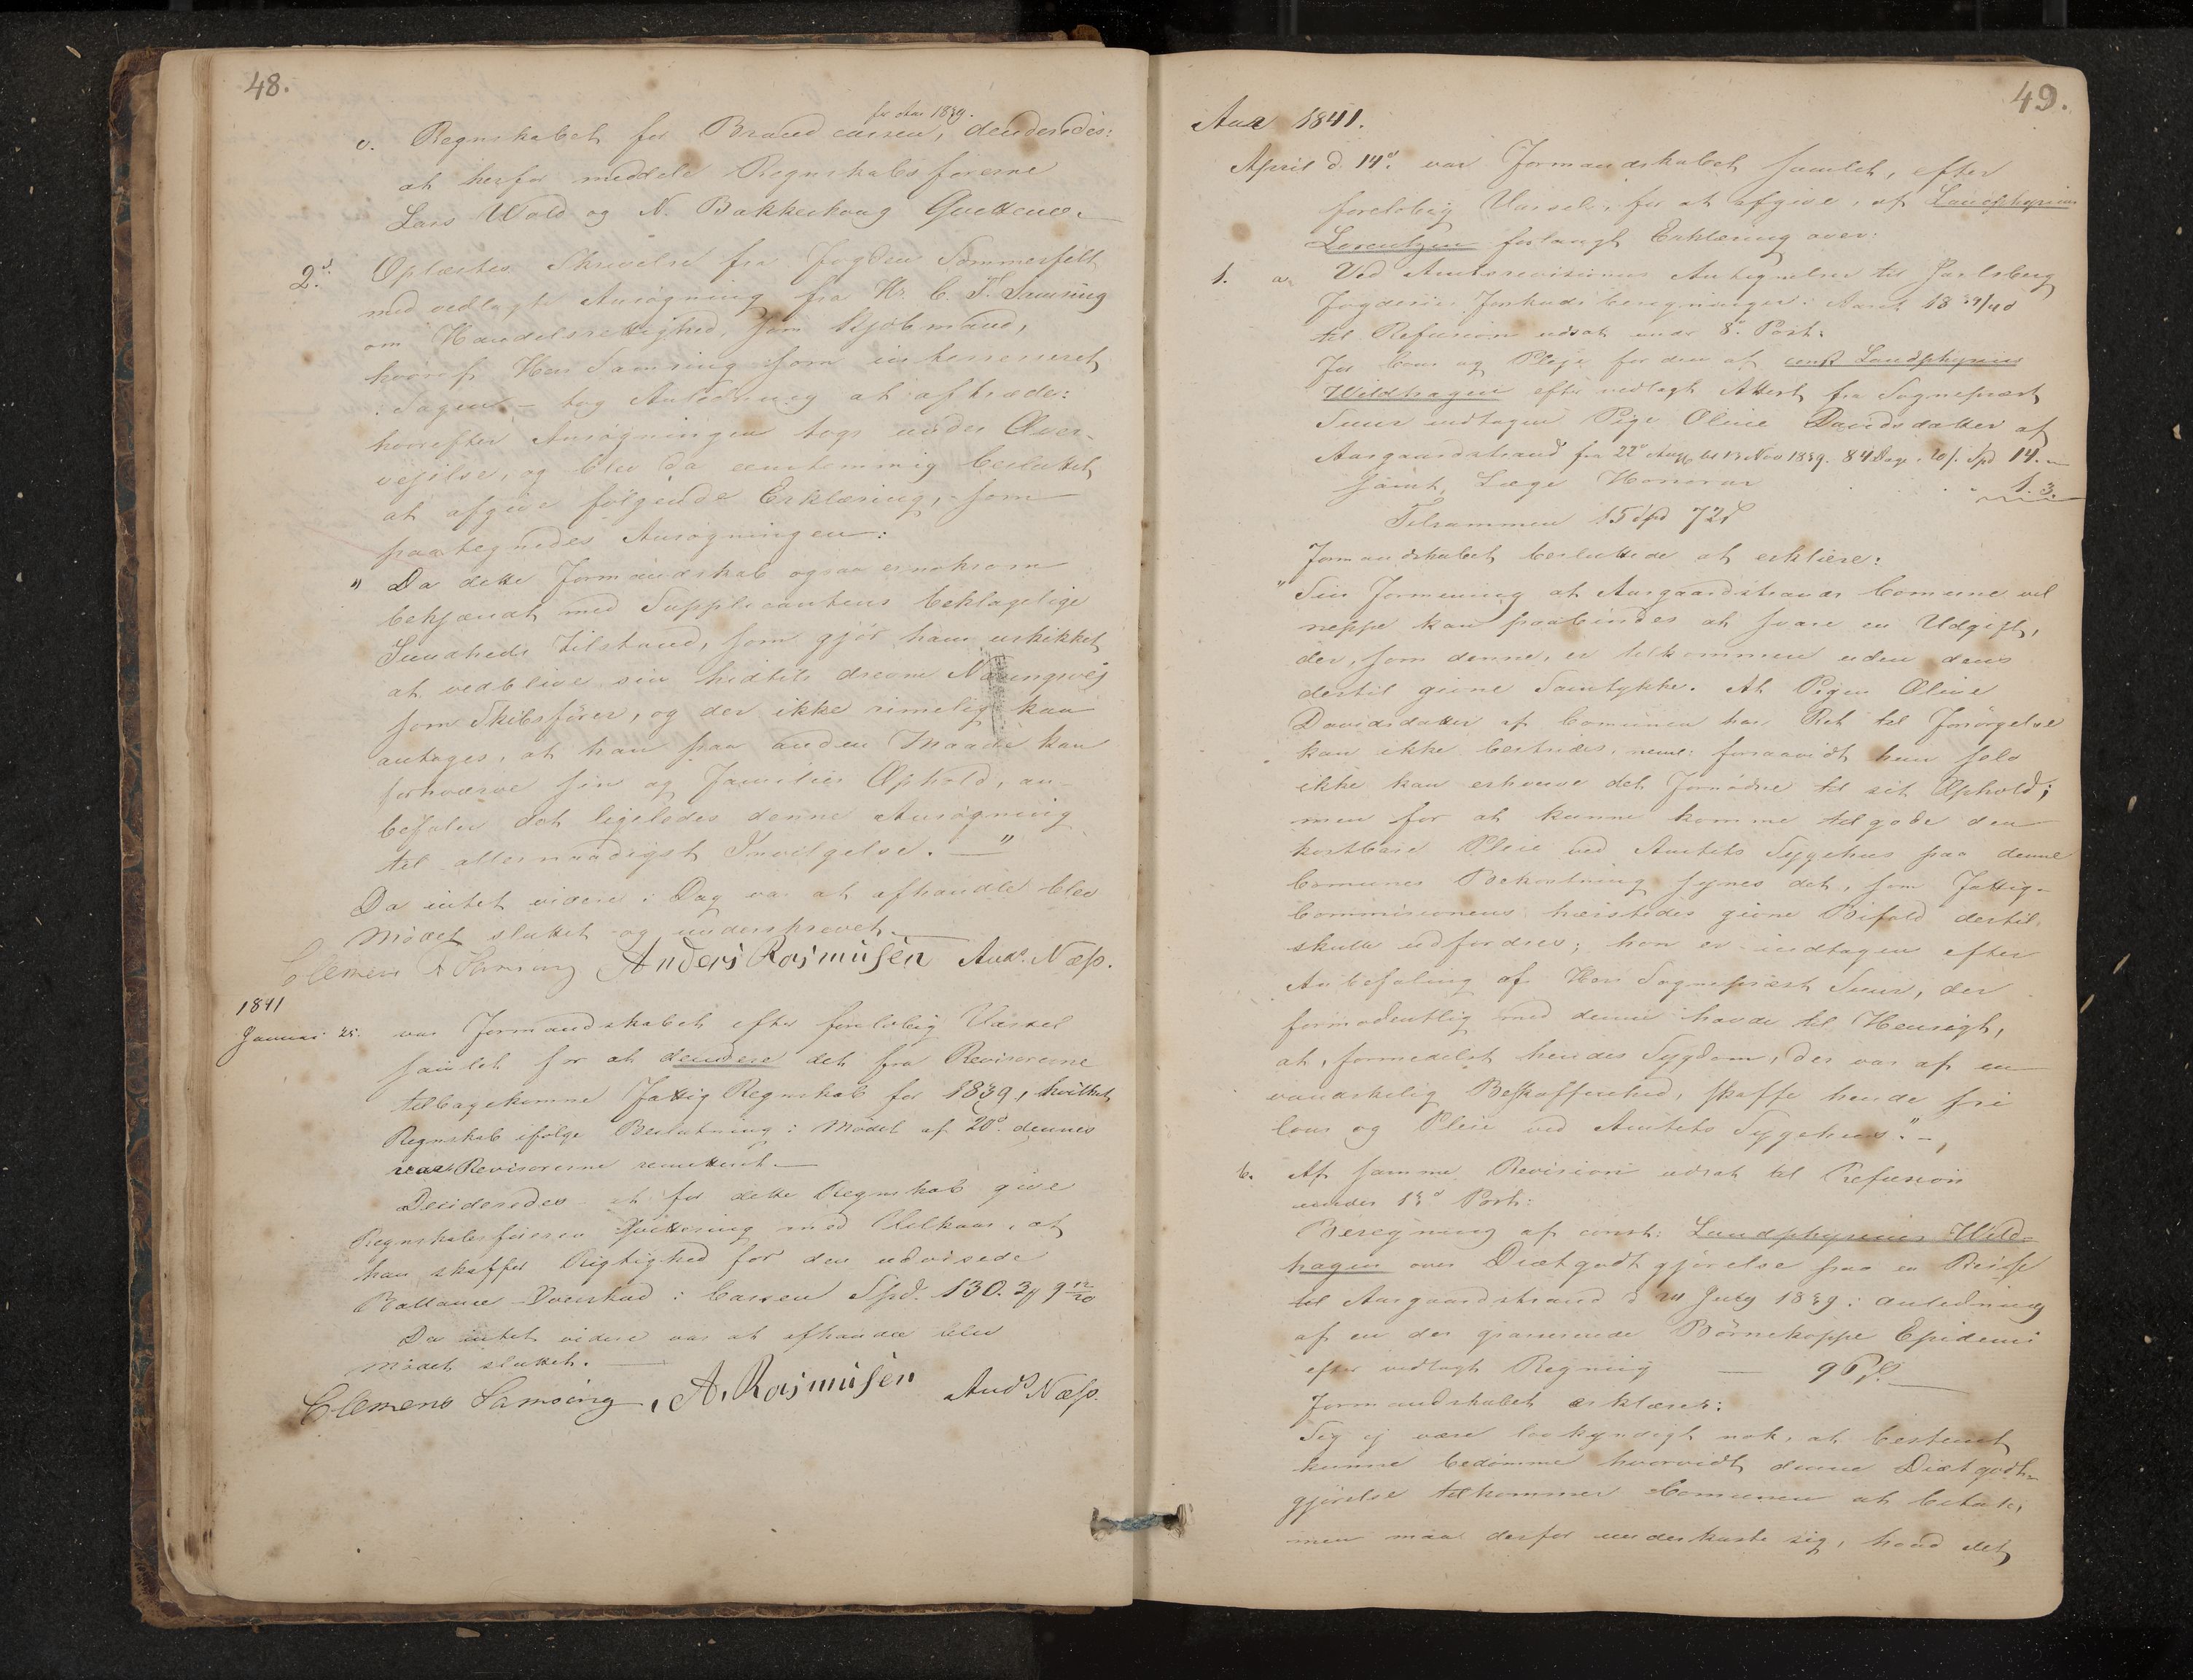 48.
for Aar 1839.
c. Regnskabet for Brandcassen, decideredes:
at herfor meddele Regnskabsførerne
Lars Wold og N. Bakkeskoug Qvittence.
2d. Oplæstes Skrivelse fra Fogden Sommerfelt
med vedlagt Ansøgning fra Hr. C. T. Samsing
om Handelsrettighed, som Kjøbmand,
hvoraf Herr Samsing som interresseret
i Sagen – tog Anledning at aftræde:
hvorefter Ansøgningen togs under Over-
vejelse, og blev da eenstemmig besluttet
at afgive følgende Erklæring, som
paategnedes Ansøgningen:
" Da dette Formandskab ogsaa er noksom
bekjændt med Supplicantens beklagelige
Sundheds Tilstand, som gjør ham uskikket
at vedblive sin hidtils drevne Næringsvej
som Skibsfører, og der ikke rimelig kan
antages, at han paa anden Maade kan
forhværve sin og Families Ophold, an-
befaler det ligeledes denne Ansøgning
til allernaadigst Indvilgelse. — "
Da intet videre i Dag var at afhandle blev
Mødet sluttet og underskrevet.
Clemens Samsing Anders Rasmusen Ands. Næss.
1841
Januar 25. var Formandskabet efter foreløbig Varsel
samlet for at decidere det fra Revisorerne
tilbagekomne Fattig Regnskab for 1839, hvilket
Regnskab ifølge Beslutning i Mødet af 20d. dennes
var Revisorerne remitteret. —
Decideredes at for dette Regnskab give
Regnskabsføreren Qvittering med Vilkaar, at
han skaffer Rigtighed for den udviisede
Ballance Overskud i Cassen Spd. 130. 3 # 9 12/20
Da intet videre var at afhandle blev
Mødet sluttet. —
Clemens Samsing, A. Rasmusen Ands Næss.
49.
Aar 1841.
April d. 14d. var Formandskabet samlet, efter
foreløbig Varsel, for at afgive, af Landphysicus
Lorentzen forlangt Erklæring over:
1. a. Ved Amtsrevisionens Antegnelser til Jarlsberg
Fogderies Forskudsberegninger i Aaret 1839/40
til Refusion udsat under 8d. Post.
For Cour og Pleje for den af const. Landphysicus
Wildhagen efter vedlagt Attest fra Sognepræst
Suur indtagen Pige Oline Davidsdatter af
Aasgaardstrand fra 22d Aug. til 13 Nov 1839. 84 Dage. 20 s. Spd 14. —
samt, Læge Honorar . . . 1. 3.
Tilsammen 15 Spd 72 s
Formandskabet besluttede at erklære:
" Sin Formening at Aasgaardstrands Comune vel
neppe kan paabindes at svare en Udgift,
der, som denne, er tilkommen uden dens
dertil givne Samtykke. At Pigen Oline
Davidsdatter af Comunen har Ret til Forsørgelse
kan ikke bestrides, neml: forsaavidt hun selv
ikke kan erhverve det Fornødne til sit Ophold;
men for at kunne komme tilgode den
kostbare Pleie ved Amtets Sygehus paa denne
Comunes Bekostning synes det, som Fattig-
Commisionens hersteds givne Bifald dertil
skulle udfordres; hun er indtagen efter
Anbefaling af Herr Sognepræst Suur, der
formodentlig med denne havde til Hensigt,
at, formedelst hendes Sygdom, der var af en
vanskelig Beskaffenhed, skaffe hende fri
Cour og Pleie ved Amtets Sygehus." —
b. Af samme Revision udsat til Refusion
under 13d Post:
Beregning af const: Landphysicus Wild-
hagen over Diætgodtgjørelse paa en Reise
til Aasgaardstrand d July 1839 i anledning
af en der grasserende Børnekoppe Epidemi
efter vedlagt Regning — 96 s.
Formandskabet erklærer:
Sig ej være lovkyndigt nok, at bestemt
kunne bedømme hvorvidt denne Diætgodt-
gjørelse tilkommer Comunen at betale,
men maa derfor underkaste sig, hvad det